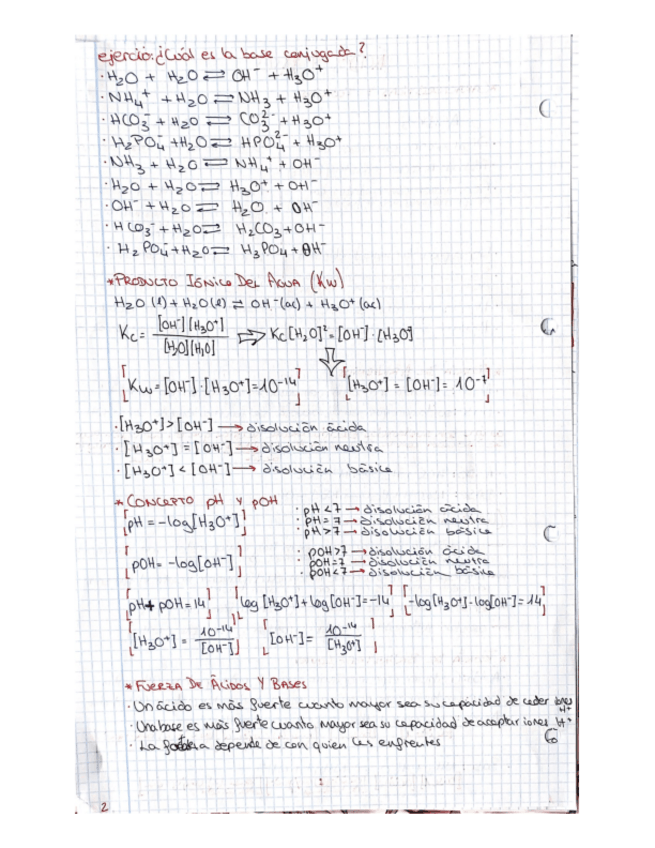 ejercio: ¿Cuál es la base conjugada?
· H₂O + H₂O ⇌ OH⁻ + H₃O⁺
· NH₄⁺ + H₂O ⇌ NH₃ + H₃O⁺
· HCO₃⁻ + H₂O ⇌ CO₃²⁻ + H₃O⁺
· H₂PO₄⁻ + H₂O ⇌ HPO₄²⁻ + H₃O⁺
· NH₃ + H₂O ⇌ NH₄⁺ + OH⁻
· H₂O + H₂O ⇌ H₃O⁺ + OH⁻
· OH⁻ + H₂O ⇌ H₂O + OH⁻
· HCO₃⁻ + H₂O ⇌ H₂CO₃ + OH⁻
· H₂PO₄⁻ + H₂O ⇌ H₃PO₄ + OH⁻
* PRODUCTO IÓNICO DEL AGUA (Kw)
H₂O (l) + H₂O (l) ⇌ OH⁻(ac) + H₃O⁺(ac)
Kc = [OH⁻][H₃O⁺] / [H₂O][H₂O] ⇒ Kc[H₂O]² = [OH⁻]·[H₃O⁺]
[Kw = [OH⁻]·[H₃O⁺] = 10⁻¹⁴] [[H₃O⁺] = [OH⁻] = 10⁻⁷]
· [H₃O⁺] > [OH⁻] → disolución ácida
· [H₃O⁺] = [OH⁻] → disolución neutra
· [H₃O⁺] < [OH⁻] → disolución básica
* CONCEPTO pH y pOH
[pH = -log[H₃O⁺]]
· pH < 7 → disolución ácida
· pH = 7 → disolución neutra
· pH > 7 → disolución básica
[pOH = -log[OH⁻]]
· pOH > 7 → disolución ácida
· pOH = 7 → disolución neutra
· pOH < 7 → disolución básica
[pH + pOH = 14] [log [H₃O⁺] + log [OH⁻] = -14] [-log[H₃O⁺] - log[OH⁻] = 14]
[[H₃O⁺] = 10⁻¹⁴ / [OH⁻]] [[OH⁻] = 10⁻¹⁴ / [H₃O⁺]]
* FUERZA DE ÁCIDOS Y BASES
· Un ácido es más fuerte cuanto mayor sea su capacidad de ceder iones H⁺
· Una base es más fuerte cuanto mayor sea su capacidad de aceptar iones H⁺
· La depende de con quien les enfrentes
2